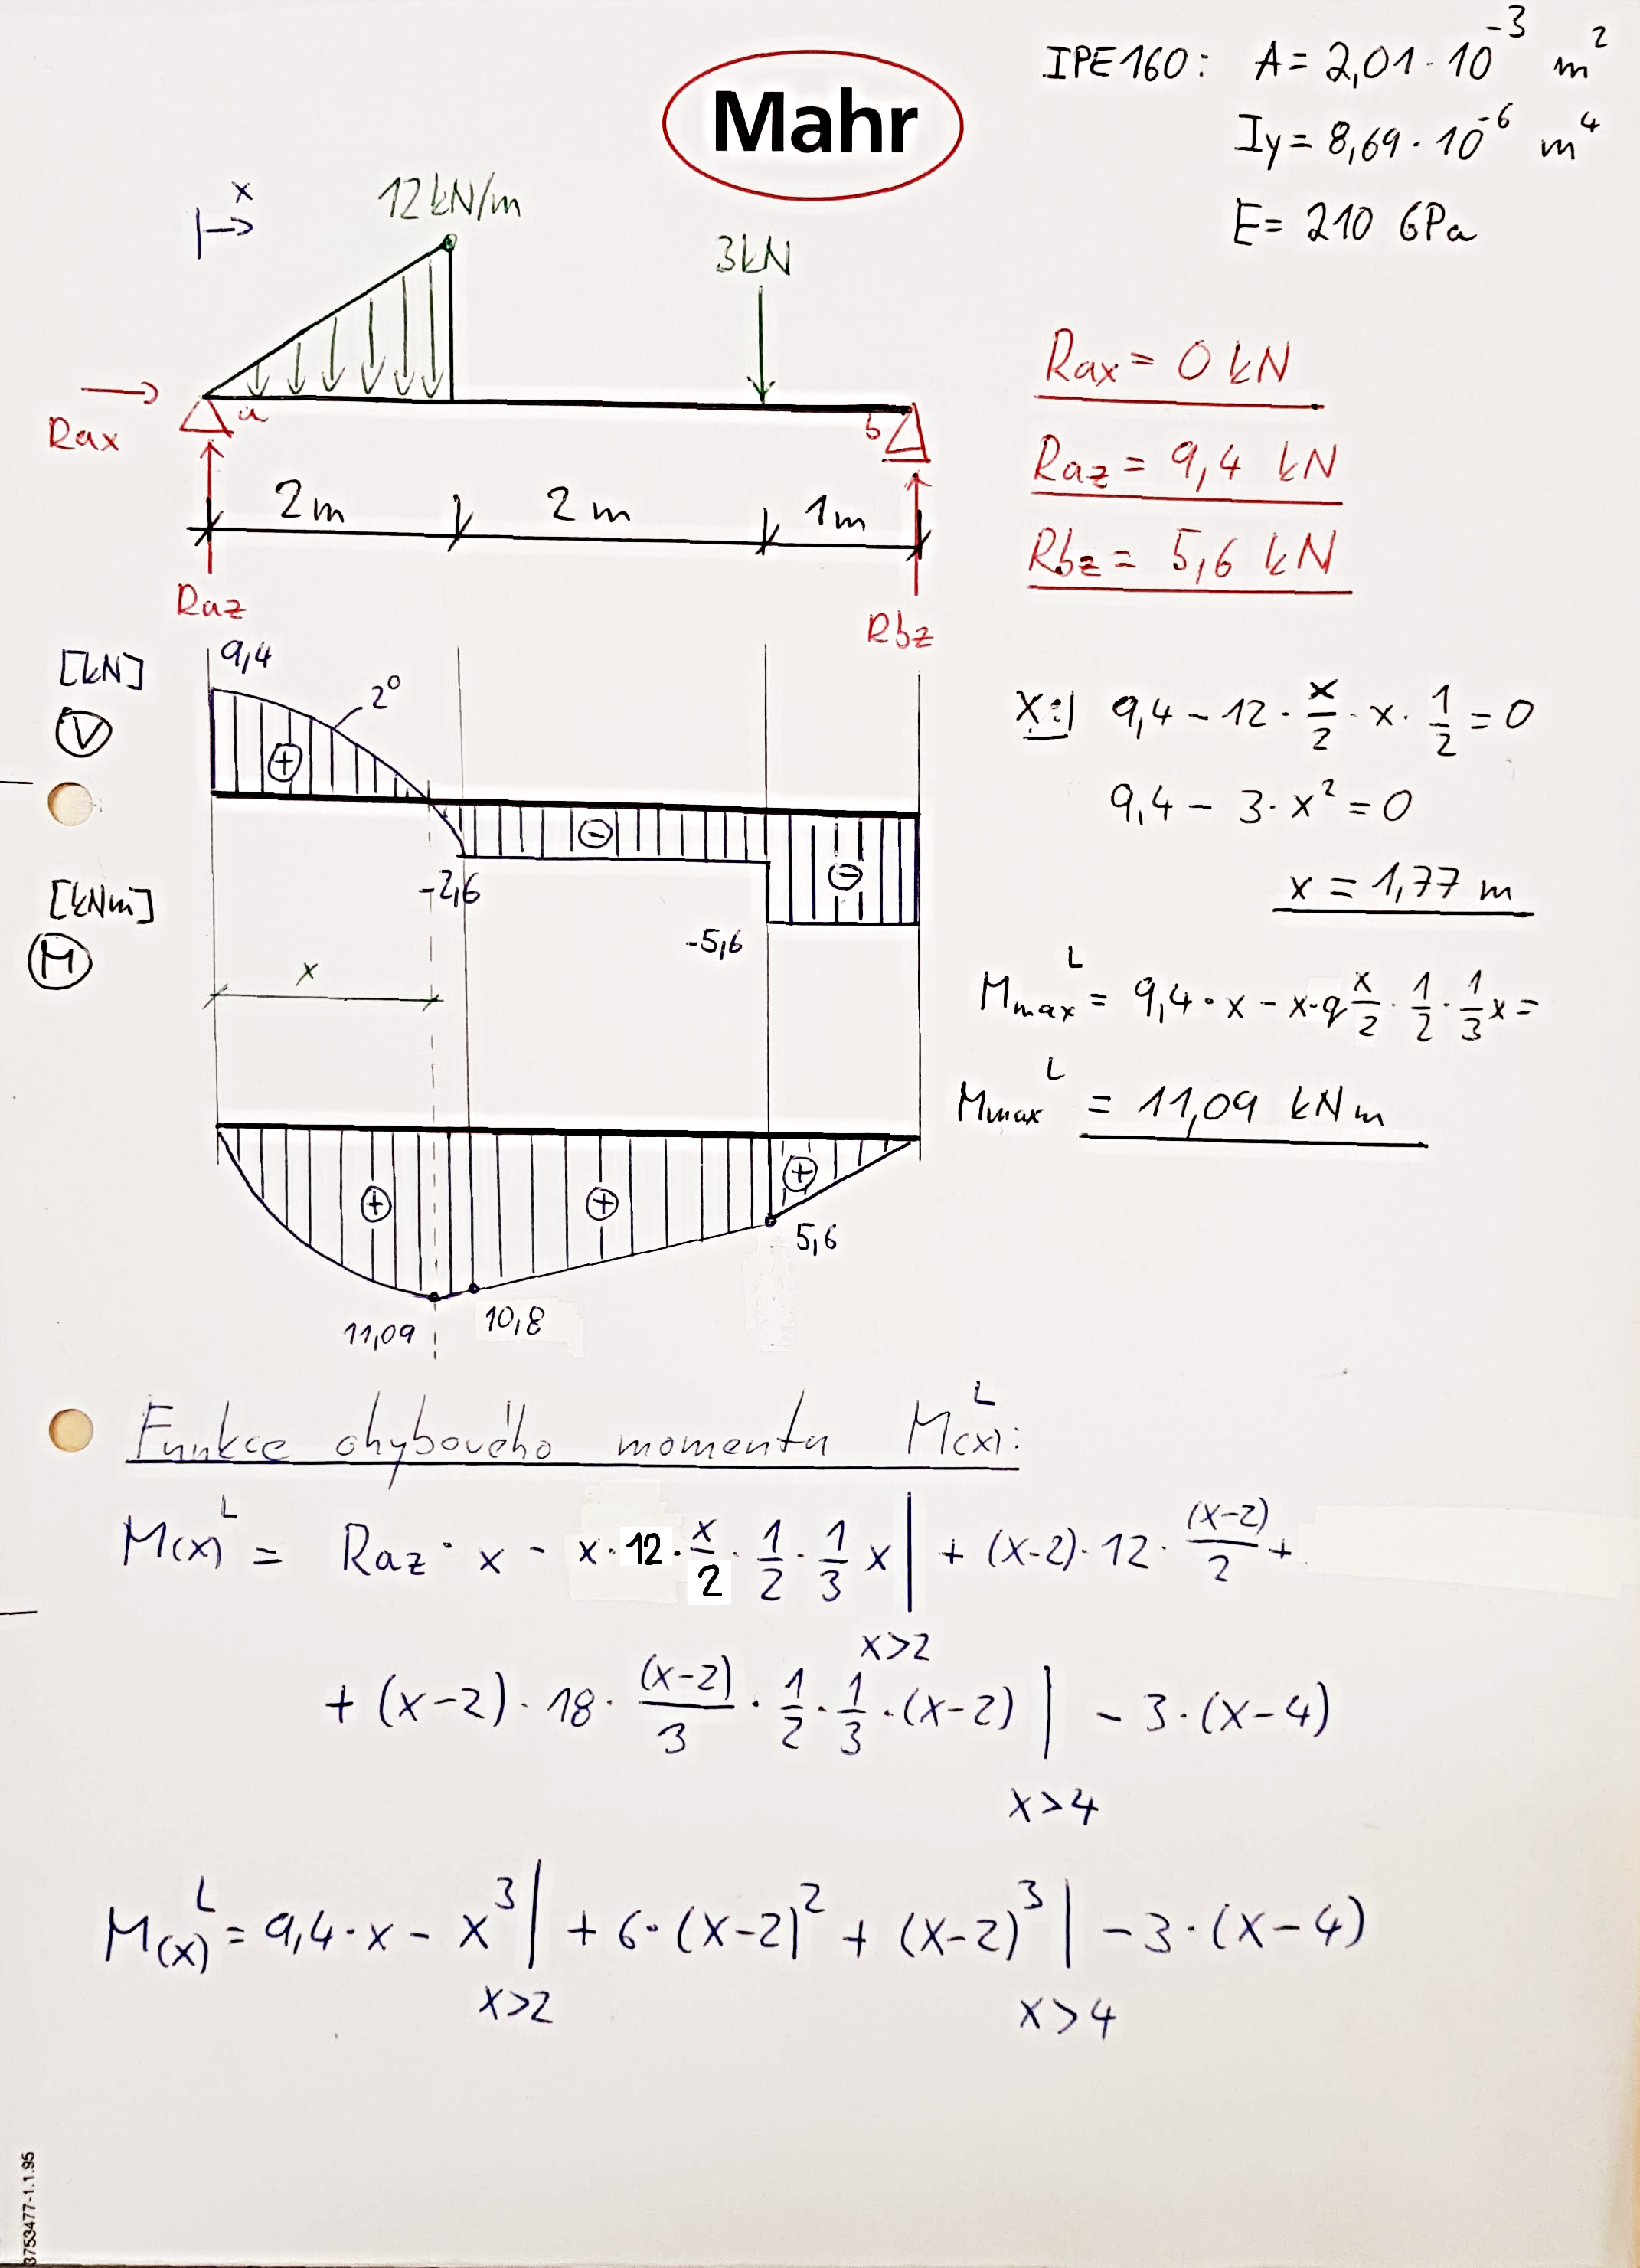 Mahr
IPE160: A = 2,01 · 10⁻³ m²
Iy = 8,69 · 10⁻⁶ m⁴
E = 210 GPa
x
12 kN/m
3 kN
Rax
a
b
2 m
2 m
1 m
Raz
Rbz
Rax = 0 kN
Raz = 9,4 kN
Rbz = 5,6 kN
[kN]
V
9,4
2°
+
-
-
-2,6
-5,6
x
x:| 9,4 - 12 · x/2 · x · 1/2 = 0
9,4 - 3 · x² = 0
x = 1,77 m
Mmax^L = 9,4 · x - x · q x/2 · 1/2 · 1/3 x =
Mmax^L = 11,09 kNm
[kNm]
M
+
+
+
11,09
10,8
5,6
Funkce ohybového momentu M(x)^L:
M(x)^L = Raz · x - x · 12 · x/2 · 1/2 · 1/3 x | x>2 + (x-2) · 12 · (x-2)/2 +
+ (x-2) · 18 · (x-2)/3 · 1/2 · 1/3 · (x-2) | x>4 - 3 · (x-4)
M(x)^L = 9,4 · x - x³ | x>2 + 6 · (x-2)² + (x-2)³ | x>4 - 3 · (x-4)
3753477-1.1.95